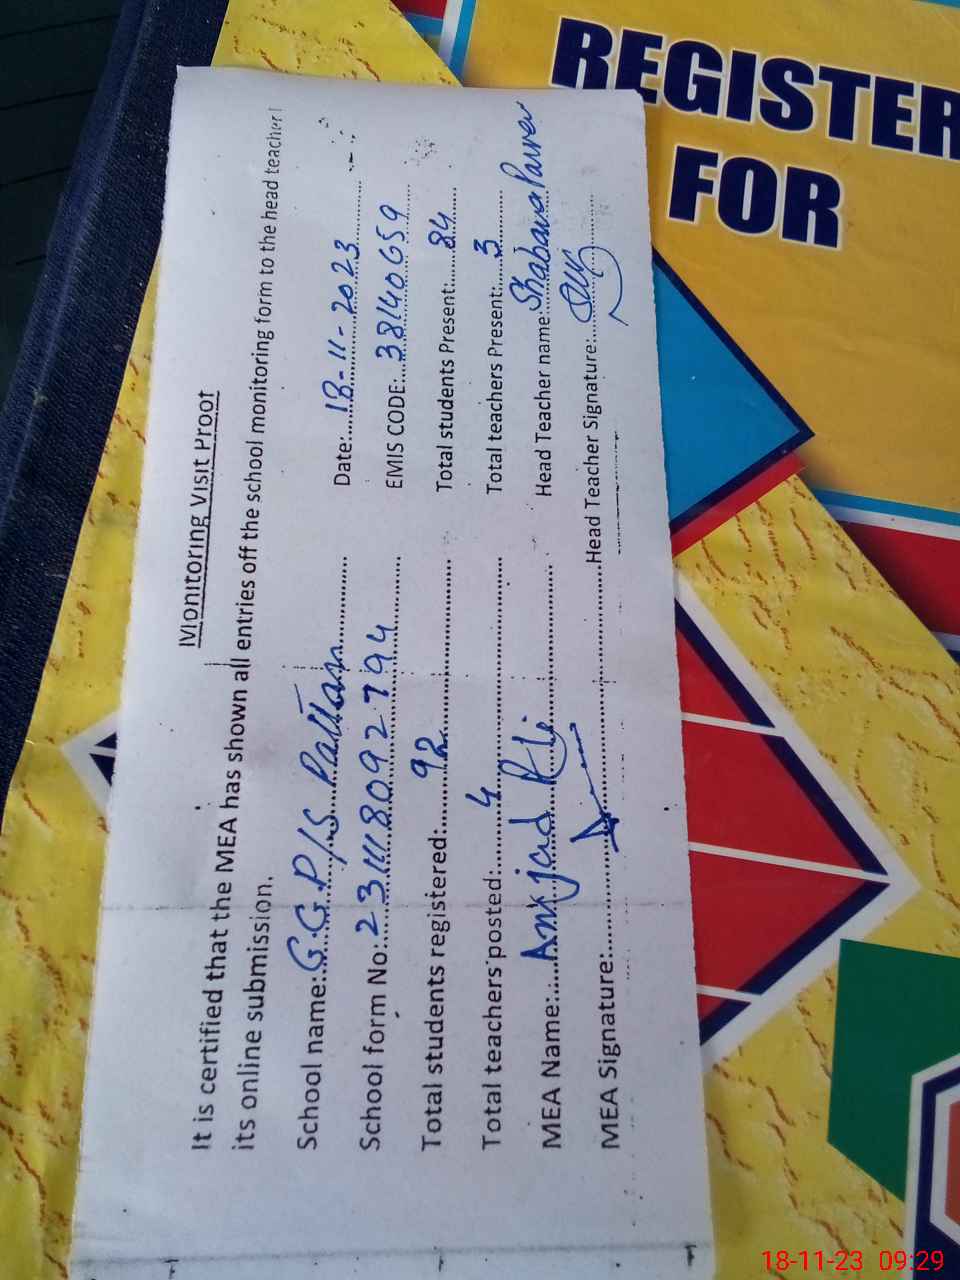 REGISTER
FOR
Monitoring Visit Proof
It is certified that the MEA has shown all entries off the school monitoring form to the head teacher
its online submission.
School name:..G.G.P/S Pattan Date:..18-11-2023
School form No:..23111809279 4 EMIS CODE:..38140659
Total students registered:..92 Total students Present:..84
Total teachers posted:..4 Total teachers Present:..3
MEA Name:..Amjad Ali Head Teacher name:..Shabana Parven
MEA Signature:.. Head Teacher Signature:..
18-11-23 09:29